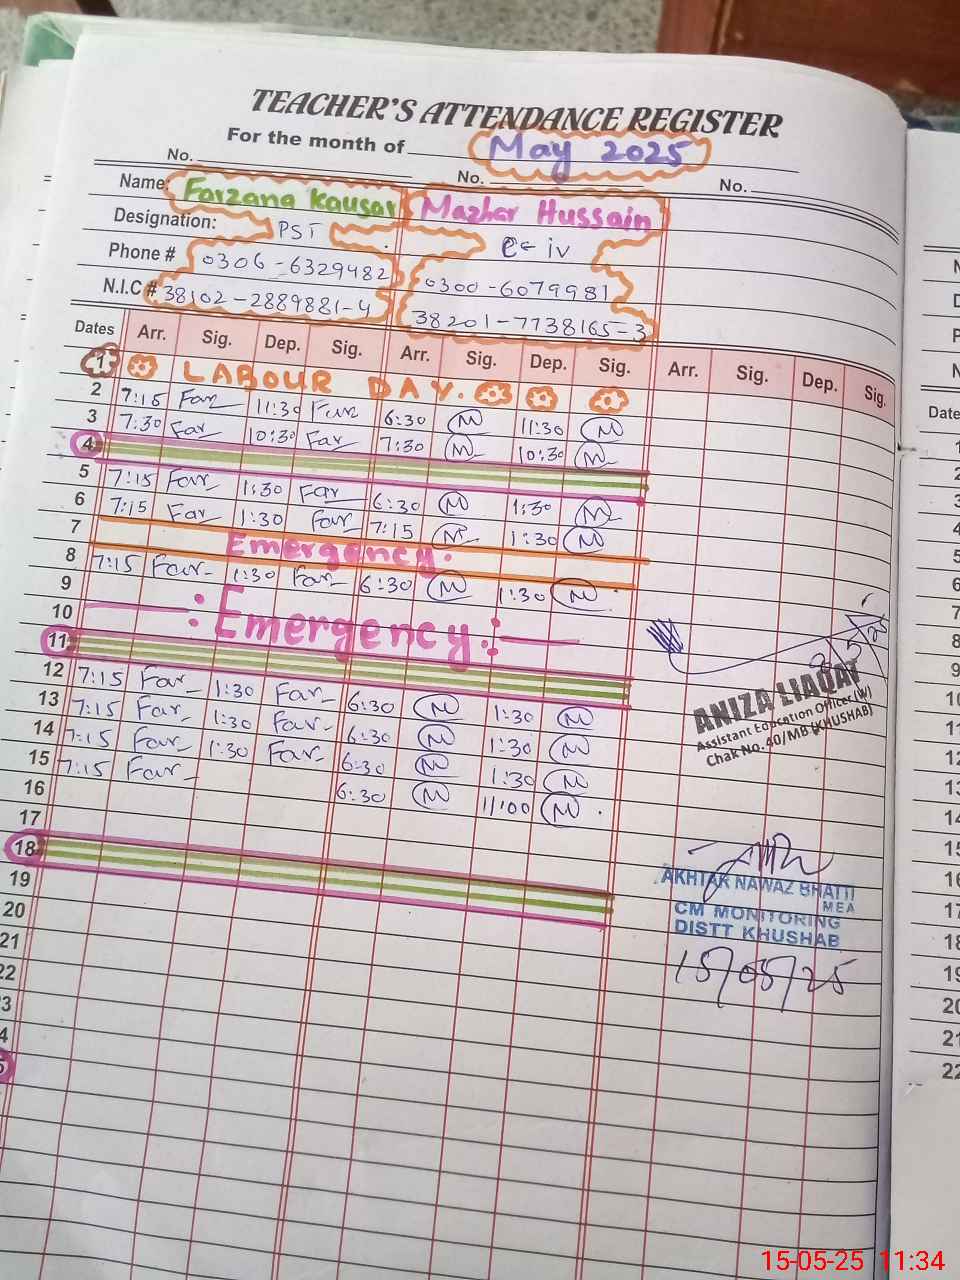 TEACHER'S ATTENDANCE REGISTER
For the month of May 2025
No. No. No.
Name: Farzana Kausar Mazhar Hussain
Designation: PST C- iv
Phone # 0306-6329482 0300-6079981
N.I.C # 38102-2889881-4 38201-7738165-3
Dates Arr. Sig. Dep. Sig. Arr. Sig. Dep. Sig. Arr. Sig. Dep. Sig.
1 LABOUR DAY.
2 7:15 Far 11:30 Far 6:30 M 11:30 M
3 7:30 Far 10:30 Far 7:30 M 10:30 M
4
5 7:15 Far 1:30 Far 6:30 M 1:30 M
6 7:15 Far 1:30 Far 7:15 M 1:30 M
7 Emergency.
8 7:15 Far 1:30 Far 6:30 M 1:30 M
9
10 : Emergency :
11
12 7:15 Far 1:30 Far 6:30 M 1:30 M
13 7:15 Far 1:30 Far 6:30 M 1:30 M
14 7:15 Far 1:30 Far 6:30 M 1:30 M
15 7:15 Far 6:30 M 11:00 M
16
17
18
19
20
21
22
3
4
5
ANIZA LIAQAT
Assistant Education Officer (W)
Chak No. 40/MB (KHUSHAB)
AKHTAR NAWAZ BHATTI
MEA
CM MONITORING
DISTT KHUSHAB
15/05/25
Date
1
2
3
4
5
6
7
8
9
10
11
12
13
14
15
16
17
18
19
20
21
22
15-05-25 11:34